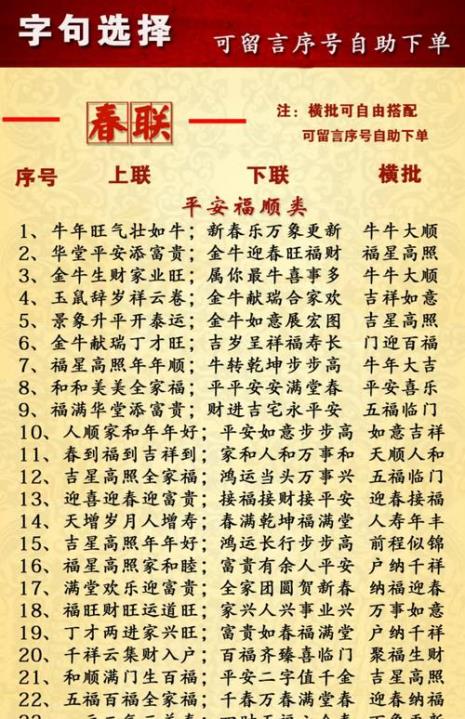 字句选择
可留言序号自助下单
春联
注：横批可自由搭配
可留言序号自助下单
序号 上联 下联 横批
平安福顺类
1、牛年旺气壮如牛；新春乐万象更新 牛牛大顺
2、华堂平安添富贵；金牛迎春旺福财 福星高照
3、金牛生财家业旺；属你最牛喜事多 牛牛大顺
4、玉鼠辞岁祥云卷；金牛献瑞合家欢 吉祥如意
5、景象升平开泰运；金牛如意展宏图 吉星高照
6、金牛献瑞丁才旺；吉岁呈祥福寿长 门迎百福
7、福星高照年年顺；牛转乾坤步步高 牛年大吉
8、和和美美全家福；平平安安满堂春 平安喜乐
9、福满华堂添富贵；财进吉宅永平安 五福临门
10、人顺家和年年好；平安如意步步高 如意吉祥
11、春到福到吉祥到；家和人和万事和 天顺人和
12、吉星高照全家福；鸿运当头万事兴 五福临门
13、迎喜迎春迎富贵；接福接财接平安 迎春接福
14、天增岁月人增寿；春满乾坤福满堂 人寿年丰
15、吉星高照年年好；鸿运长行步步高 前程似锦
16、福星高照家和睦；富贵有余人平安 户纳千祥
17、满堂欢乐迎富贵；全家团圆贺新春 纳福迎春
18、福旺财旺运道旺；家兴人兴事业兴 万事如意
19、丁才两进家兴旺；富贵如春福满堂 户纳千祥
20、千祥云集财入户；百福齐臻喜临门 聚福生财
21、和顺满门生百福；平安二字值千金 吉星高照
22、五福百福全家福；千春万春满堂春 迎春纳福